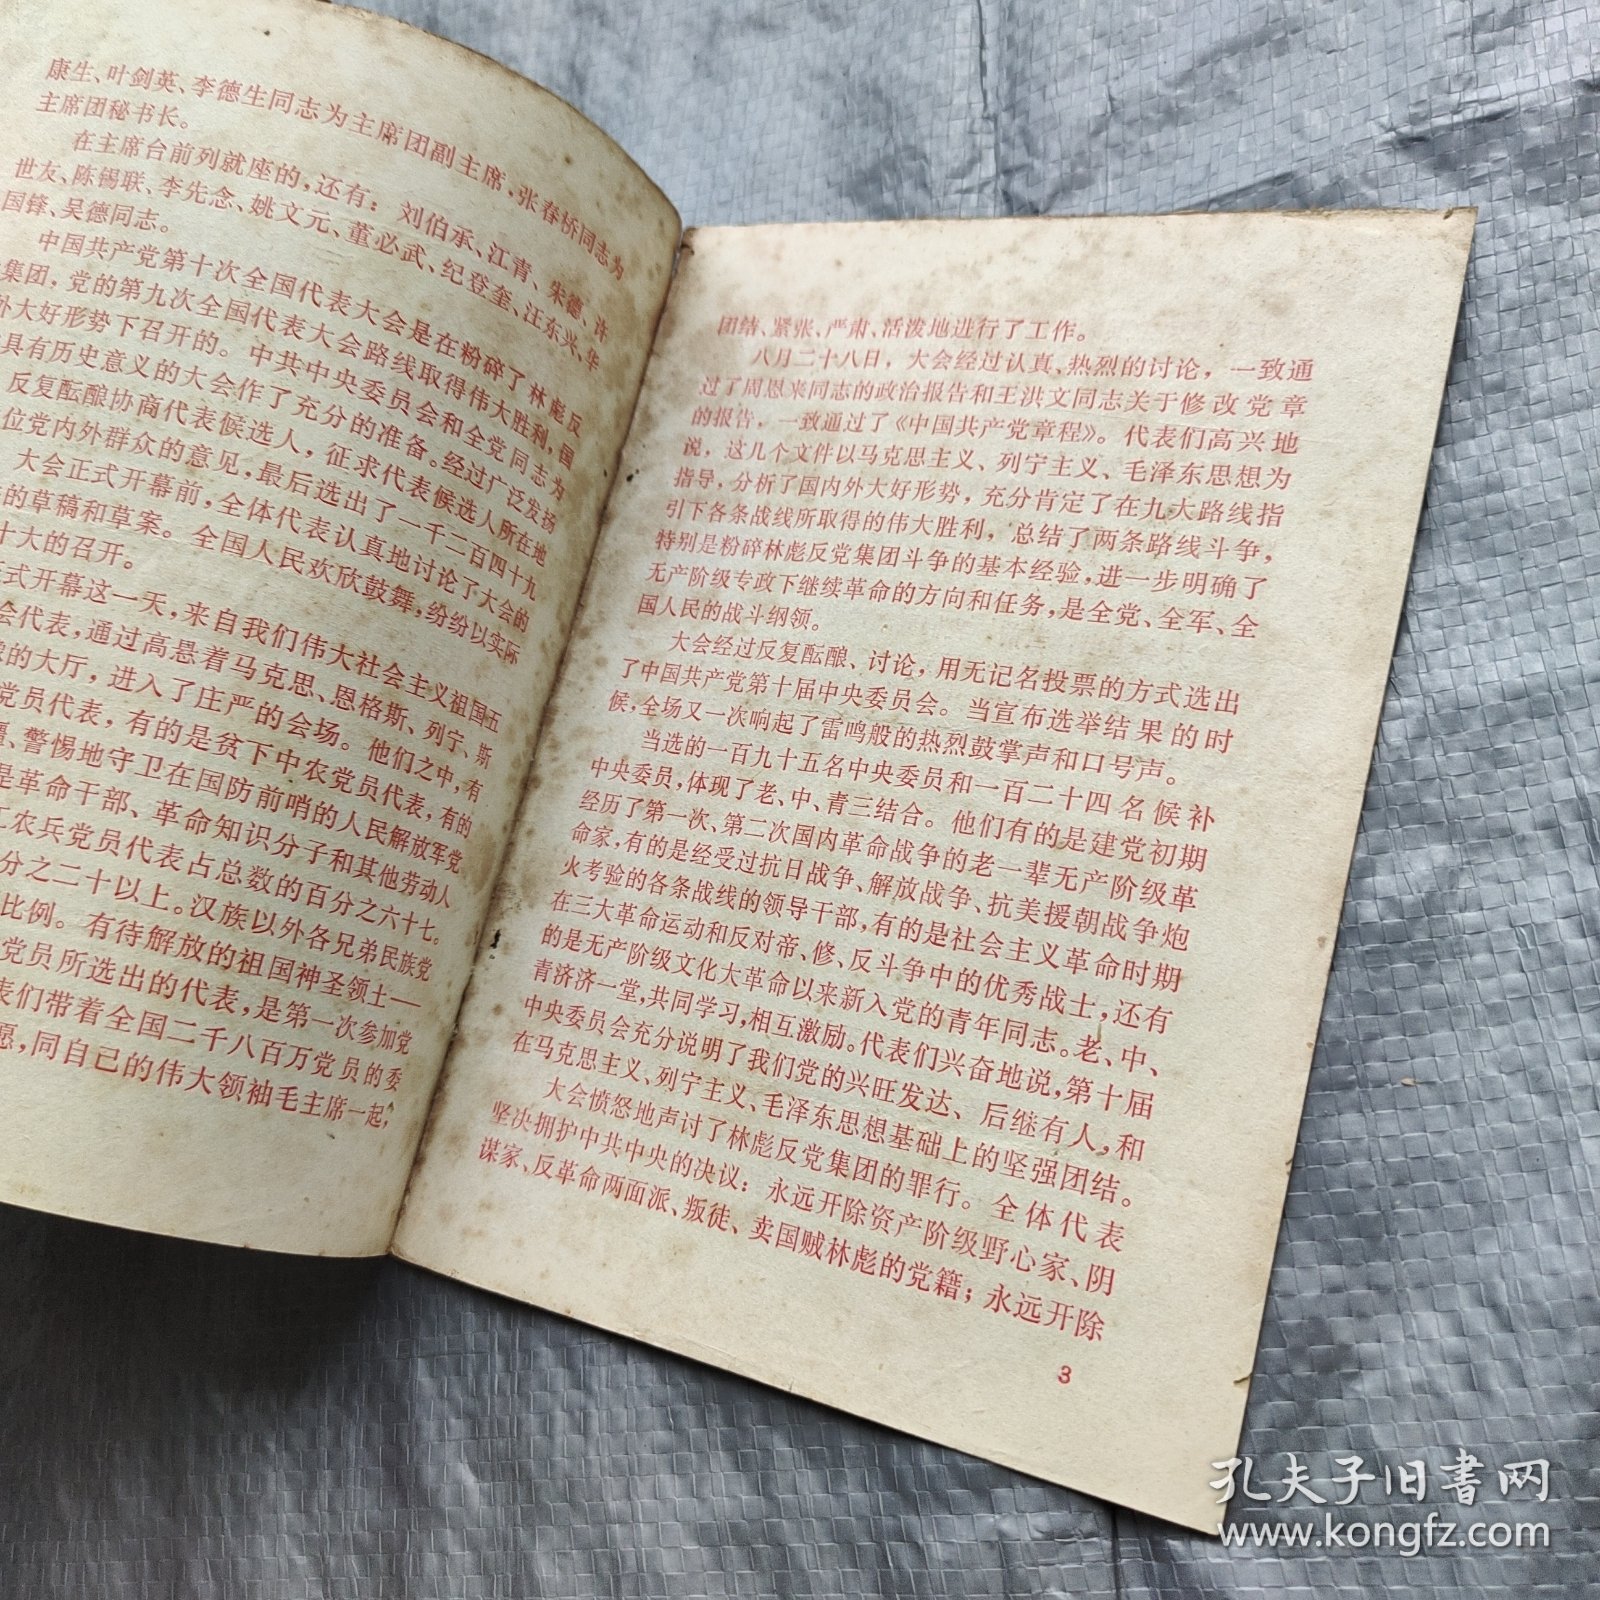 康生、叶剑英、李德生同志为主席团副主席，张春桥同志为
主席团秘书长。
在主席台前列就座的，还有：刘伯承、江青、朱德、许
世友、陈锡联、李先念、姚文元、董必武、纪登奎、汪东兴、华
国锋、吴德同志。
中国共产党第十次全国代表大会是在粉碎了林彪反
集团，党的第九次全国代表大会路线取得伟大胜利，国
外大好形势下召开的。中共中央委员会和全党同志为
具有历史意义的大会作了充分的准备。经过广泛发扬
反复酝酿协商代表候选人，征求代表候选人所在地
位党内外群众的意见，最后选出了一千二百四十九
大会正式开幕前，全体代表认真地讨论了大会的
的草稿和草案。全国人民欢欣鼓舞，纷纷以实际
十大的召开。
式开幕这一天，来自我们伟大社会主义祖国五
会代表，通过高悬着马克思、恩格斯、列宁、斯
的大厅，进入了庄严的会场。他们之中，有
党员代表，有的是贫下中农党员代表，有的
、警惕地守卫在国防前哨的人民解放军党
是革命干部、革命知识分子和其他劳动人
工农兵党员代表占总数的百分之六十七。
分之二十以上。汉族以外各兄弟民族党
比例。有待解放的祖国神圣领土——
党员所选出的代表，是第一次参加党
表们带着全国二千八百万党员的委
愿，同自己的伟大领袖毛主席一起，
团结、紧张、严肃、活泼地进行了工作。
八月二十八日，大会经过认真、热烈的讨论，一致通
过了周恩来同志的政治报告和王洪文同志关于修改党章
的报告，一致通过了《中国共产党章程》。代表们高兴地
说，这几个文件以马克思主义、列宁主义、毛泽东思想为
指导，分析了国内外大好形势，充分肯定了在九大路线指
引下各条战线所取得的伟大胜利，总结了两条路线斗争，
特别是粉碎林彪反党集团斗争的基本经验，进一步明确了
无产阶级专政下继续革命的方向和任务，是全党、全军、全
国人民的战斗纲领。
大会经过反复酝酿、讨论，用无记名投票的方式选出
了中国共产党第十届中央委员会。当宣布选举结果的时
候，全场又一次响起了雷鸣般的热烈鼓掌声和口号声。
当选的一百九十五名中央委员和一百二十四名候补
中央委员，体现了老、中、青三结合。他们有的是建党初期
经历了第一次、第二次国内革命战争的老一辈无产阶级革
命家，有的是经受过抗日战争、解放战争、抗美援朝战争炮
火考验的各条战线的领导干部，有的是社会主义革命时期
在三大革命运动和反对帝、修、反斗争中的优秀战士，还有
的是无产阶级文化大革命以来新入党的青年同志。老、中、
青济济一堂，共同学习，相互激励。代表们兴奋地说，第十届
中央委员会充分说明了我们党的兴旺发达、后继有人，和
在马克思主义、列宁主义、毛泽东思想基础上的坚强团结。
大会愤怒地声讨了林彪反党集团的罪行。全体代表
坚决拥护中共中央的决议：永远开除资产阶级野心家、阴
谋家、反革命两面派、叛徒、卖国贼林彪的党籍；永远开除
3
孔夫子旧书网
www.kongfz.com